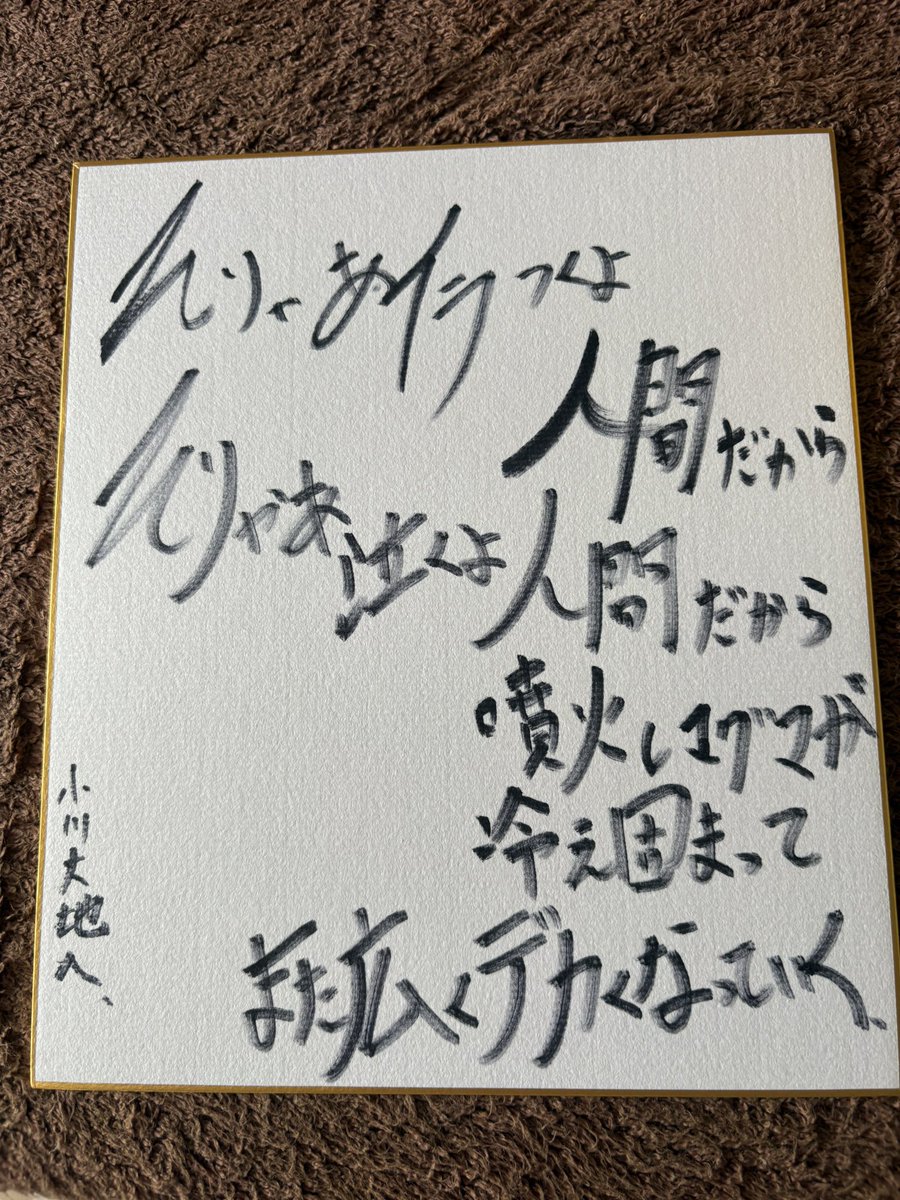 そりゃあイラつくよ
人間だから
そりゃあ泣くよ人間だから
噴火しマグマが
冷え固まって
また広くデカくなっていく、
小川大地へ、